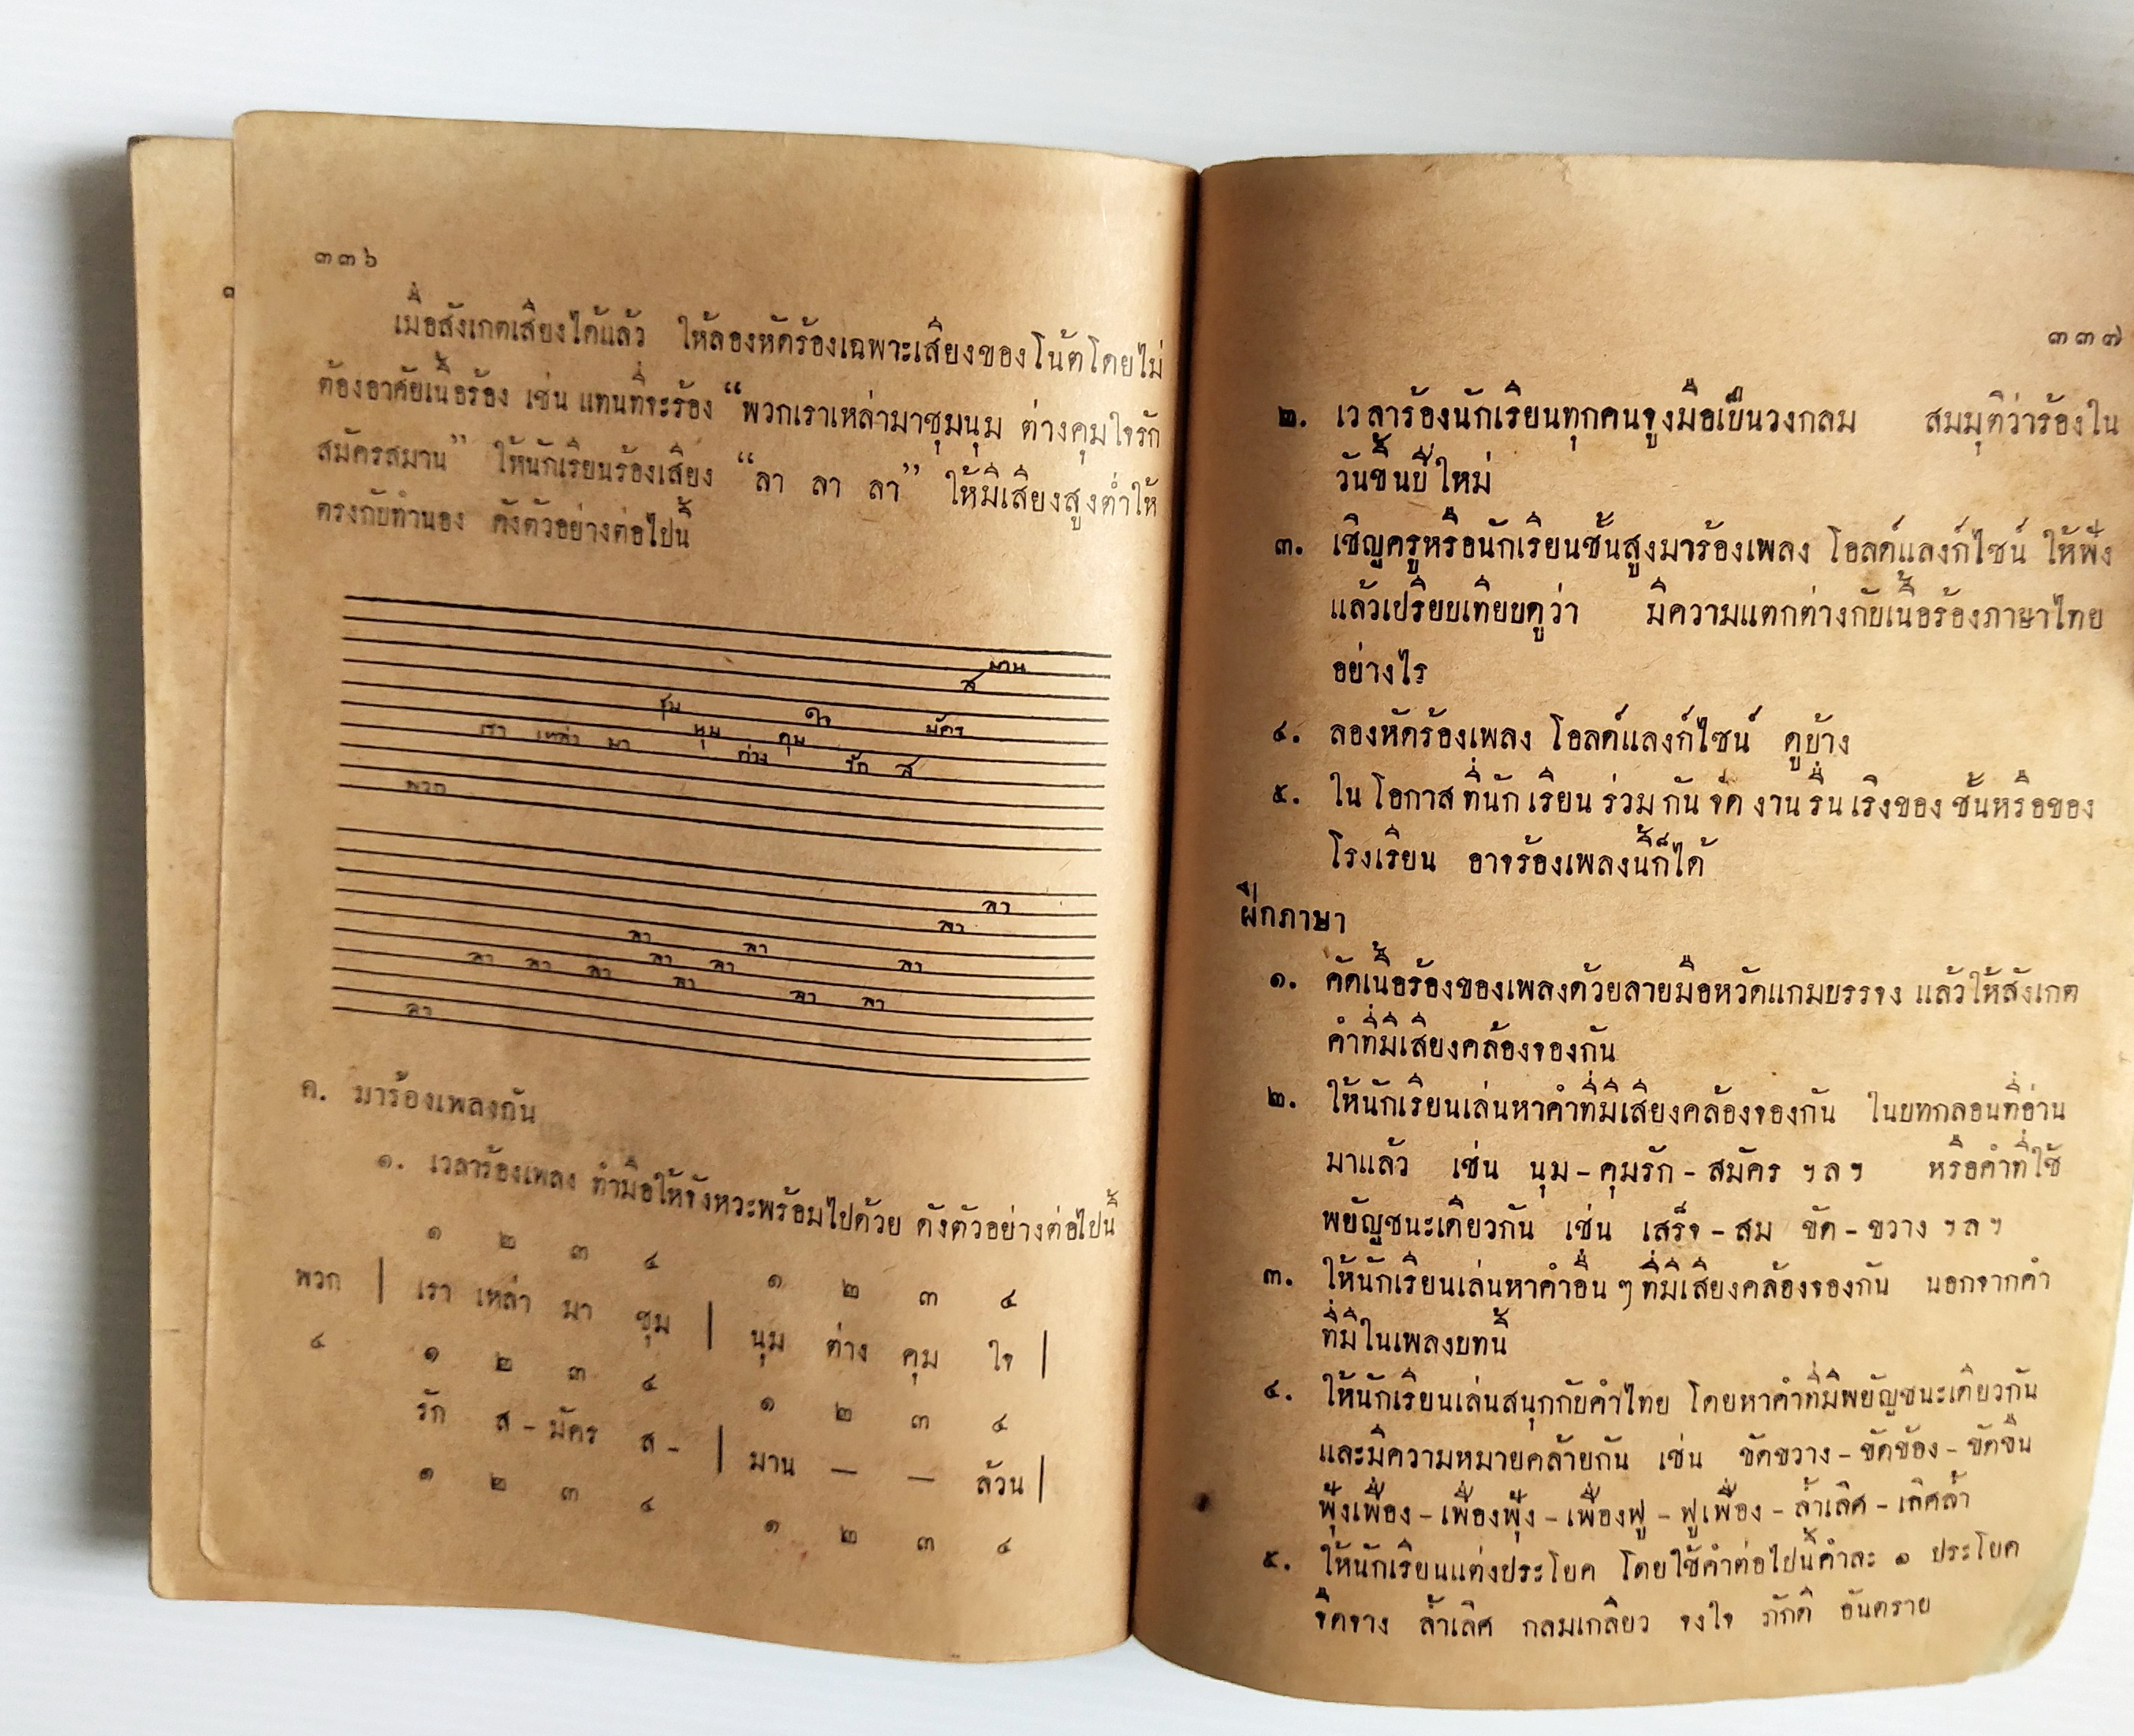 ๓๓๖
เมื่อสังเกตเสียงได้แล้ว ให้ลองหัดร้องเฉพาะเสียงของโน้ตโดยไม่
ต้องอาศัยเนื้อร้อง เช่น แทนที่จะร้อง “พวกเราเหล่ามาชุมนุม ต่างคุมใจรัก
สมัครสมาน” ให้นักเรียนร้องเสียง “ลา ลา ลา” ให้มีเสียงสูงต่ำให้
ตรงกับทำนอง ดังตัวอย่างต่อไปนี้
พวก เรา เหล่า มา ชุม นุม ต่าง คุม ใจ รัก ส มัคร ส มาน
ลา ลา ลา ลา ลา ลา ลา ลา ลา ลา ลา ลา ลา ลา
ค. มาร้องเพลงกัน
๑. เวลาร้องเพลง ทำมือให้จังหวะพร้อมไปด้วย ดังตัวอย่างต่อไปนี้
๑ ๒ ๓ ๔ ๑ ๒ ๓ ๔
พวก | เรา เหล่า มา ชุม | นุม ต่าง คุม ใจ |
๔ ๑ ๒ ๓ ๔ ๑ ๒ ๓ ๔
รัก ส - มัคร ส - | มาน — — ล้วน |
๑ ๒ ๓ ๔ ๑ ๒ ๓ ๔
๓๓๗
๒. เวลาร้องนักเรียนทุกคนจูงมือเป็นวงกลม สมมุติว่าร้องใน
วันขึ้นปีใหม่
๓. เชิญครูหรือนักเรียนชั้นสูงมาร้องเพลง โอลด์แลงก์ไซน์ ให้ฟัง
แล้วเปรียบเทียบดูว่า มีความแตกต่างกับเนื้อร้องภาษาไทย
อย่างไร
๔. ลองหัดร้องเพลง โอลด์แลงก์ไซน์ ดูบ้าง
๕. ในโอกาสที่นักเรียนร่วมกันจัดงานรื่นเริงของชั้นหรือของ
โรงเรียน อาจร้องเพลงนี้ก็ได้
ฝึกภาษา
๑. คัดเนื้อร้องของเพลงด้วยลายมือหวัดแกมบรรจง แล้วให้สังเกต
คำที่มีเสียงคล้องจองกัน
๒. ให้นักเรียนเล่นหาคำที่มีเสียงคล้องจองกัน ในบทกลอนที่อ่าน
มาแล้ว เช่น นุม - คุมรัก - สมัคร ฯลฯ หรือคำที่ใช้
พยัญชนะเดียวกัน เช่น เสร็จ - สม ขัด - ขวาง ฯลฯ
๓. ให้นักเรียนเล่นหาคำอื่น ๆ ที่มีเสียงคล้องจองกัน นอกจากคำ
ที่มีในเพลงบทนี้
๔. ให้นักเรียนเล่นสนุกกับคำไทย โดยหาคำที่มีพยัญชนะเดียวกัน
และมีความหมายคล้ายกัน เช่น ขัดขวาง - ขัดข้อง - ขัดขืน
ฟุ้งเฟื่อง - เฟื่องฟุ้ง - เฟื่องฟู - ฟูเฟื่อง - ล้ำเลิศ - เลิศล้ำ
๕. ให้นักเรียนแต่งประโยค โดยใช้คำต่อไปนี้คำละ ๑ ประโยค
จืดจาง ล้ำเลิศ กลมเกลียว จงใจ ภักดี อันตราย